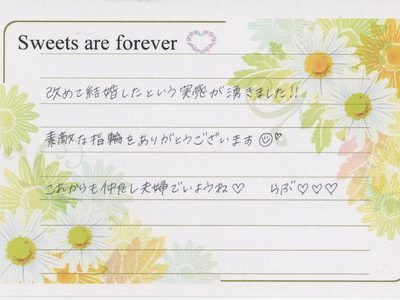 Sweets are forever
改めて結婚したという実感が湧きました!!
素敵な指輪をありがとうございます☺♡
これからも仲良し夫婦でいようね♡ らぶ♡♡♡